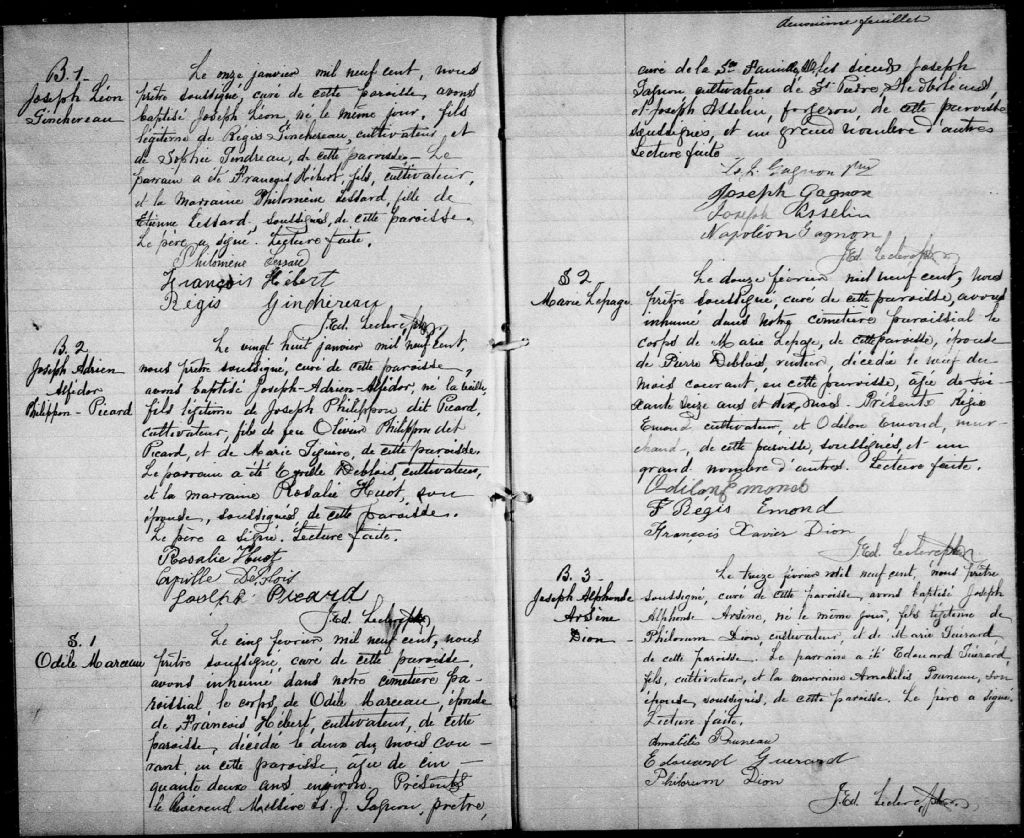 B. 1
Joseph Léon
Ginchereau
Le onze janvier mil neuf cent, nous
prêtre soussigné, curé de cette paroisse, avons
baptisé Joseph Léon, né le même jour, fils
légitime de Régis Ginchereau, cultivateur, et
de Sophie Gendreau, de cette paroisse. Le
parrain a été François Hébert, fils, cultivateur,
et la marraine Philomène Lessard, fille de
Etienne Lessard, soussignés, de cette paroisse.
Le père a signé. Lecture faite.
Philomène Lessard
François Hébert
Régis Ginchéreau
J. Ed. Leclerc, ptre
B. 2
Joseph Adrien
Alfidor
Philippon-Picard
Le vingt huit janvier mil neuf cent,
nous prêtre soussigné, curé de cette paroisse,
avons baptisé Joseph-Adrien-Alfidor, né la veille,
fils légitime de Joseph Philippon dit Picard,
cultivateur, fils de feu Olivier Philippon dit
Picard, et de Marie Giguere, de cette paroisse.
Le parrain a été Cyrille Deblois, cultivateur,
et la marraine Rosalie Huot, son
épouse, soussignés de cette paroisse.
Le père a signé. Lecture faite.
Rosalie Huot
Cyrille Deblois
Joseph Picard
J. Ed. Leclerc, ptre
S. 1
Odile Marceau
Le cinq février, mil neuf cent, nous
prêtre soussigné, curé de cette paroisse,
avons inhumé dans notre cimetière pa-
roissial le corps, de Odile Marceau, épouse
de François Hébert, cultivateur, de cette
paroisse, décédée le deux du mois cou-
rant, en cette paroisse, âgée de cin-
quante deux ans environ. Présents
le Révérend Messire Ls. J. Gagnon, prêtre,
deuxième feuillet
curé de la Ste Famille, les sieurs Joseph
Gagnon cultivateur de St Pierre, Ile d'Orléans,
et Joseph Asselin, forgeron, de cette paroisse
soussignés, et un grand nombre d'autres
Lecture faite
Ls. J. Gagnon ptre
Joseph Gagnon
Joseph Asselin
Napoléon Gagnon
J. Ed. Leclerc, ptre
S. 2
Marie Lepage
Le douze février mil neuf cent, nous
prêtre soussigné, curé de cette paroisse, avons
inhumé dans notre cimetière paroissial le
corps de Marie Lepage, de cette paroisse, épouse
de Pierre Deblois, rentier, décédée le neuf du
mois courant, en cette paroisse, âgée de soi-
xante seize ans et dix mois. Présents Régis
Emond, cultivateur, et Odilon Emond, mar-
chand, de cette paroisse, soussignés, et un
grand nombre d'autres. Lecture faite.
Odilon Emond
F Régis Emond
François Xavier Dion
J. Ed. Leclerc, ptre
B. 3
Joseph Alphonse
Arsène
Dion
Le treize février mil neuf cent, nous prêtre
soussigné, curé de cette paroisse, avons baptisé Joseph
Alphonse Arsène, né le même jour, fils légitime de
Philorum Dion, cultivateur, et de Marie Guérard,
de cette paroisse. Le parrain a été Edouard Guérard,
fils, cultivateur, et la marraine Annabélis Pruneau, son
épouse, soussignés, de cette paroisse. Le père a signé.
Lecture faite.
Annabélis Pruneau
Edouard Guerard
Philorum Dion
J. Ed. Leclerc, ptre